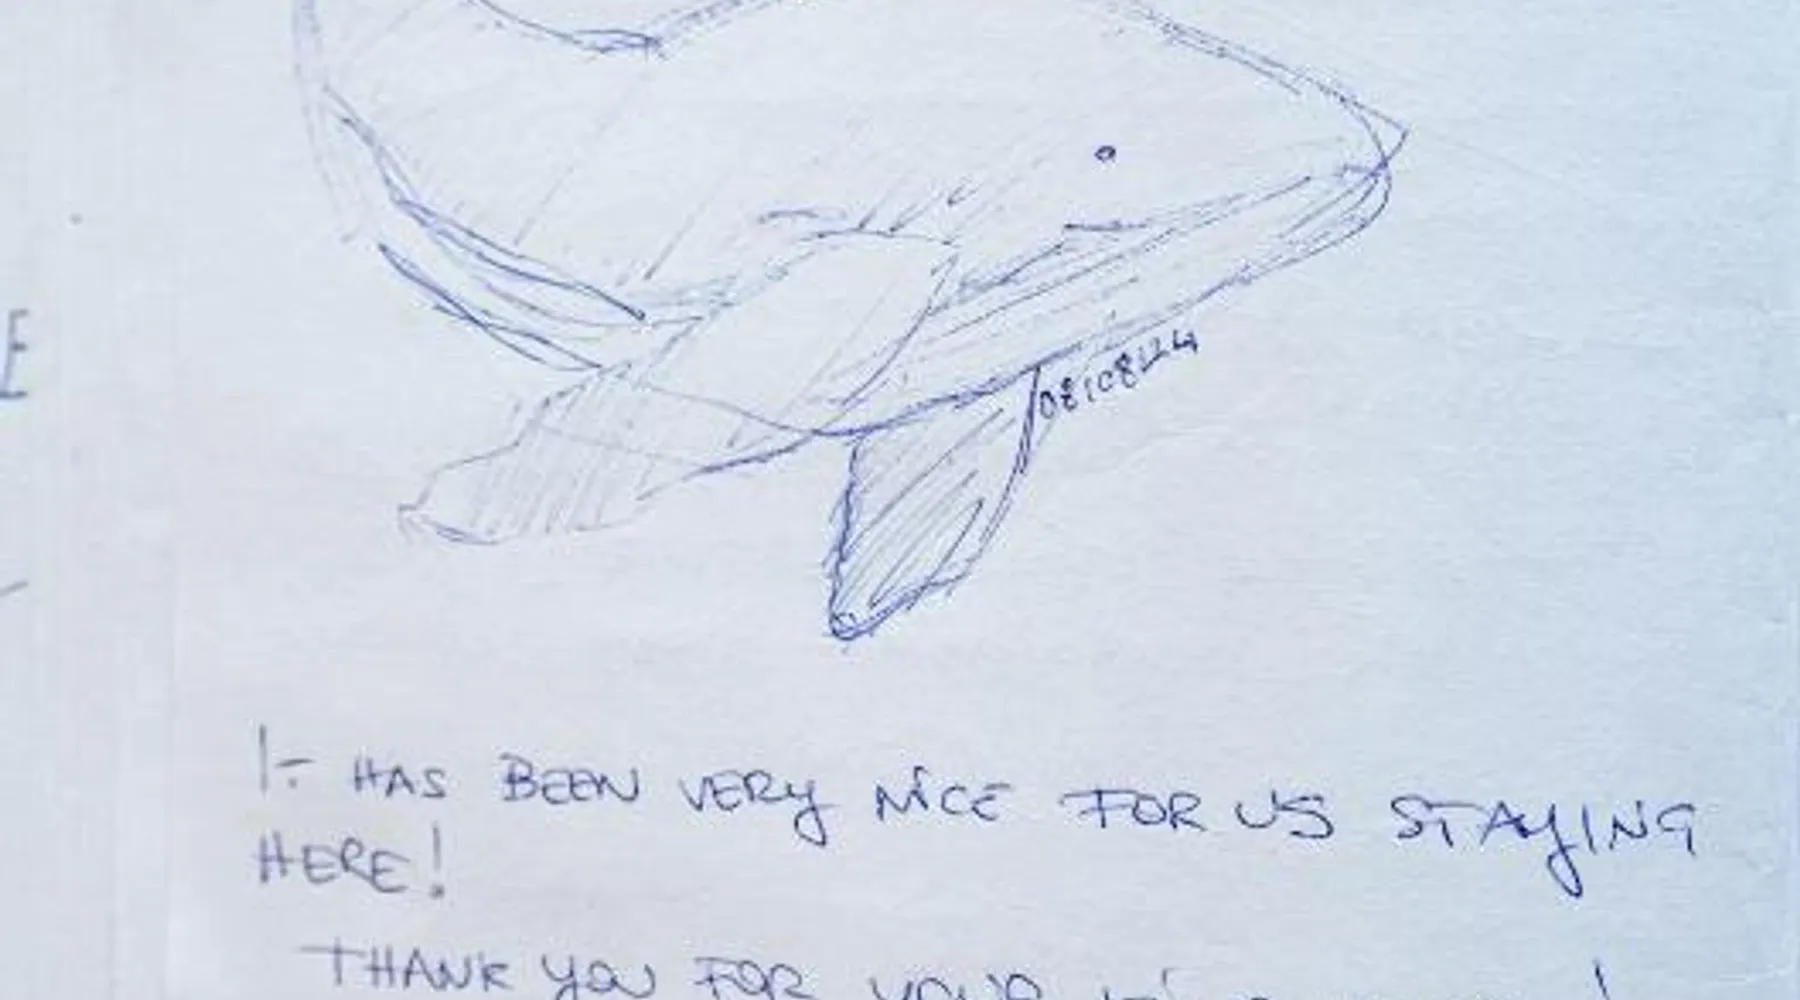 E
08/08/24
It HAS BEEN VERY NICE FOR US STAYING
HERE!
THANK YOU FOR YOUR